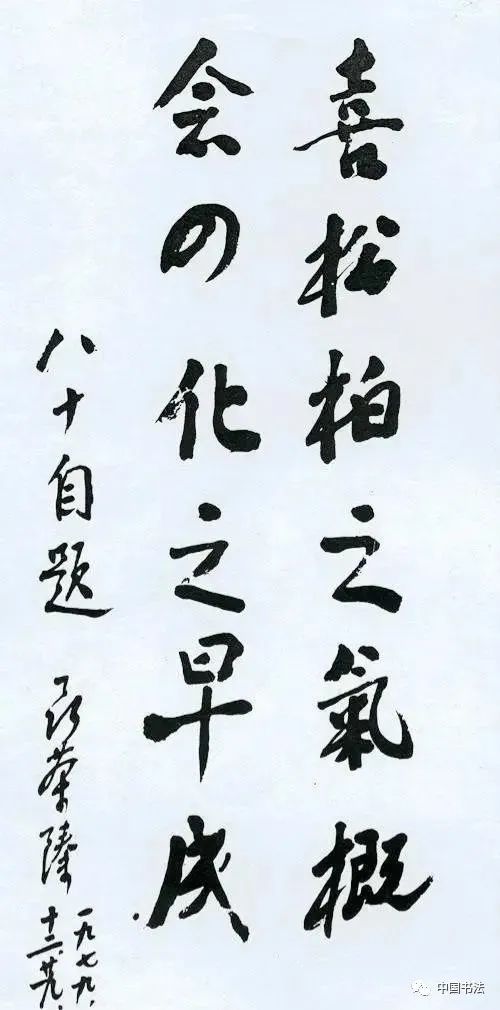 喜松柏之氣概
念四化之早成
八十自题 聂荣臻
一九七九.
十二.廿九.
中国书法